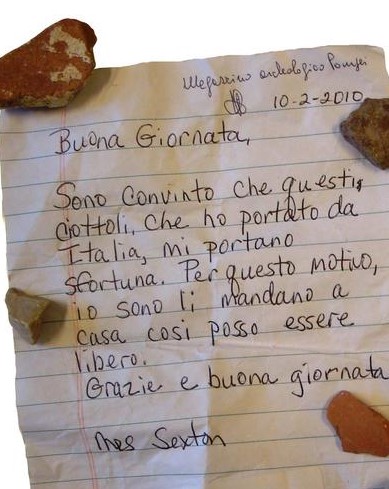 Megazzino archeologico Pompei
10-2-2010
Buona Giornata,
Sono convinto che questi,
ciottoli, che ho portato da
Italia, mi portano
sfortuna. Per questo motivo,
io sono li mandano a
casa cosi posso essere
libero.
Grazie e buona giornata
Mes Sexton